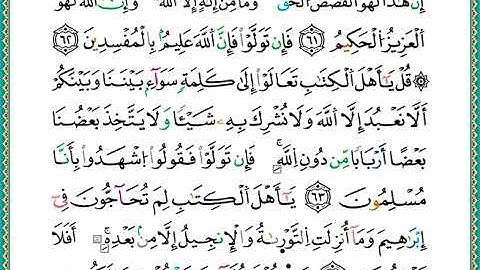 إِنَّ هَٰذَا لَهُوَ ٱلْقَصَصُ ٱلْحَقُّ وَمَا مِنْ إِلَٰهٍ إِلَّا ٱللَّهُ وَإِنَّ ٱللَّهَ لَهُوَ
ٱلْعَزِيزُ ٱلْحَكِيمُ ٦١ فَإِن تَوَلَّوْا۟ فَإِنَّ ٱللَّهَ عَلِيمٌۢ بِٱلْمُفْسِدِينَ ٦٢
۞ قُلْ يَٰٓأَهْلَ ٱلْكِتَٰبِ تَعَالَوْا۟ إِلَىٰ كَلِمَةٍ سَوَآءٍۭ بَيْنَنَا وَبَيْنَكُمْ
أَلَّا نَعْبُدَ إِلَّا ٱللَّهَ وَلَا نُشْرِكَ بِهِۦ شَيْـًٔا وَلَا يَتَّخِذَ بَعْضُنَا
بَعْضًا أَرْبَابًا مِّن دُونِ ٱللَّهِ فَإِن تَوَلَّوْا۟ فَقُولُوا۟ ٱشْهَدُوا۟ بِأَنَّا
مُسْلِمُونَ ٦٣ يَٰٓأَهْلَ ٱلْكِتَٰبِ لِمَ تُحَآجُّونَ فِىٓ
إِبْرَٰهِيمَ وَمَآ أُنزِلَتِ ٱلتَّوْرَىٰةُ وَٱلْإِنجِيلُ إِلَّا مِنۢ بَعْدِهِۦٓ أَفَلَا